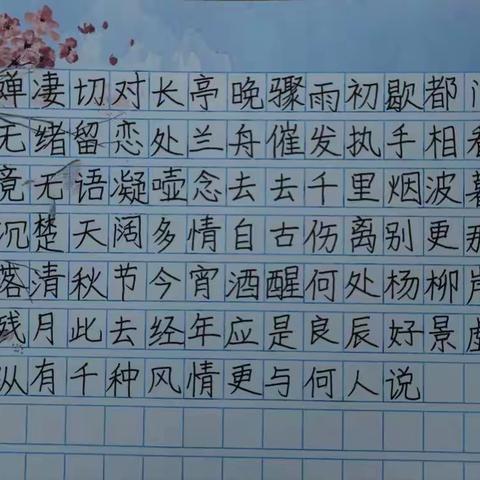 蝉凄切对长亭晚骤雨初歇都门
无绪留恋处兰舟催发执手相看
竟无语凝噎念去去千里烟波暮
沉楚天阔多情自古伤离别更那
落清秋节今宵酒醒何处杨柳岸
残月此去经年应是良辰好景虚
纵有千种风情更与何人说